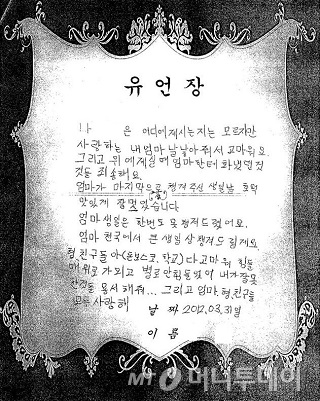 유언장
나 은 어디에 계시는지는 모르지만
사랑하는 내엄마 날 낳아 줘서 고마워요.
그리고 위에 계실때 엄마한테 화냈던것
것들 죄송해요.
엄마가 마지막으로 챙겨주신 생일날
맛있게 잘먹었습니다
엄마 생일은 한번도 못챙겨드렸어요.
엄마 천국에서 큰 생일상 챙겨드릴게요
형, 친구들 아 (돈보스코, 학교) 다 고마워 힘들
때 위로가 되고 별로 안힘들었어 내가 잘못
한것들 용서해줘... 그리고 엄마, 형, 친구들
모두 사랑해
날 짜 2012.03.31일
이 름
MT 머니투데이